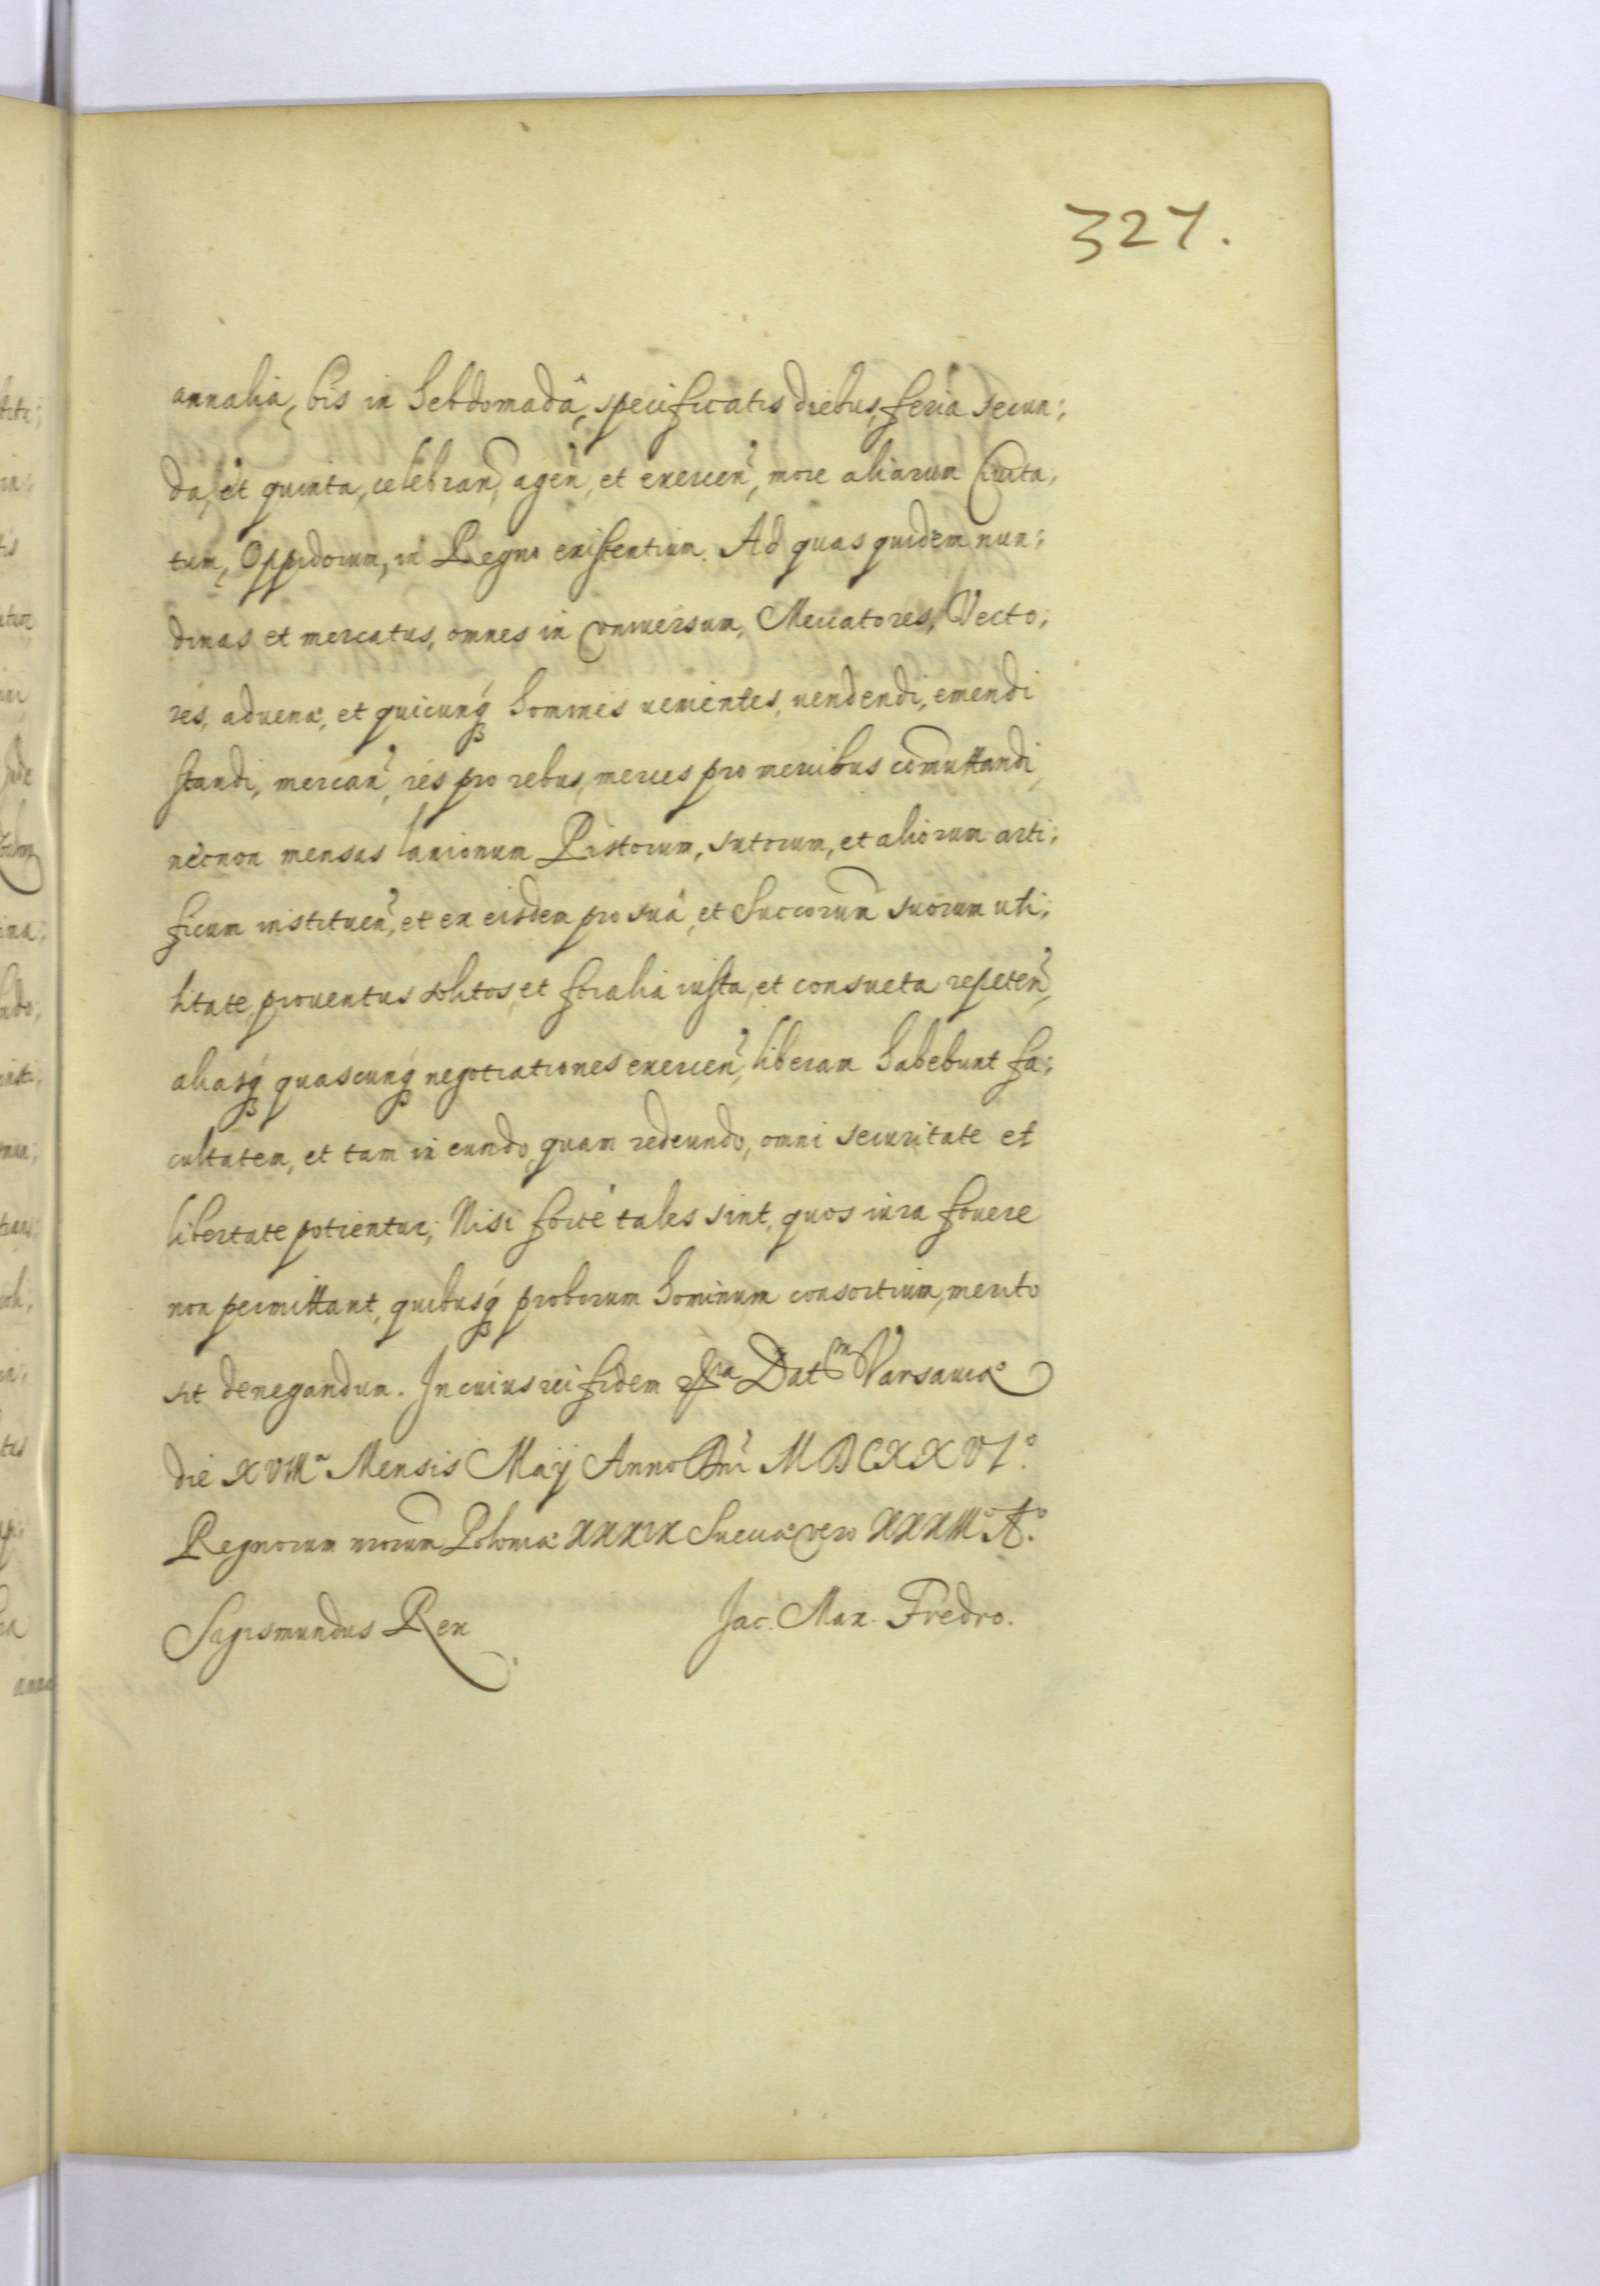 327.
annalia, bis in hebdomadâ, specificatis diebus, feria secun:
da, et quinta, celebran, agen, et exercen, more aliarum Civita,
tum, Oppidorum, in Regno existentium. Ad quas quidem nun:
dinas et mercatus, omnes in Conversum, Mercatores, Vecto,
res, advenæ, et quicunq homines venientes, vendendi, emendi
standi, mercan, res pro rebus, merces pro mercibus comuttandi,
necnon mensas lanionum Pistorum, sutorum, et aliorum arti;
ficum instituen, et ex eisdem pro suâ, et Succorum suorum uti;
litate, proventus solitos, et foralia iusta, et consueta repeten,
aliasq quascunq negotiationes exercen, liberam habebunt fa:
cultatem, et tam in eundo, quam redeundo, omni securitate et
libertate potientur; Nisi forte tales sint, quos iura fovere
non permittant, quibusq proborum hominum consortium, merito
sit denegandum. In cuius rei fidem Dat Varsaviæ
die XVIIIa Mensis Maij Anno Dni MDCXXVIo.
Regnorum nrorum Poloniæ XXXIX Sueciæ vero XXXIIIo Ao.
Sigismundus Rex Jac. Max. Fredro.